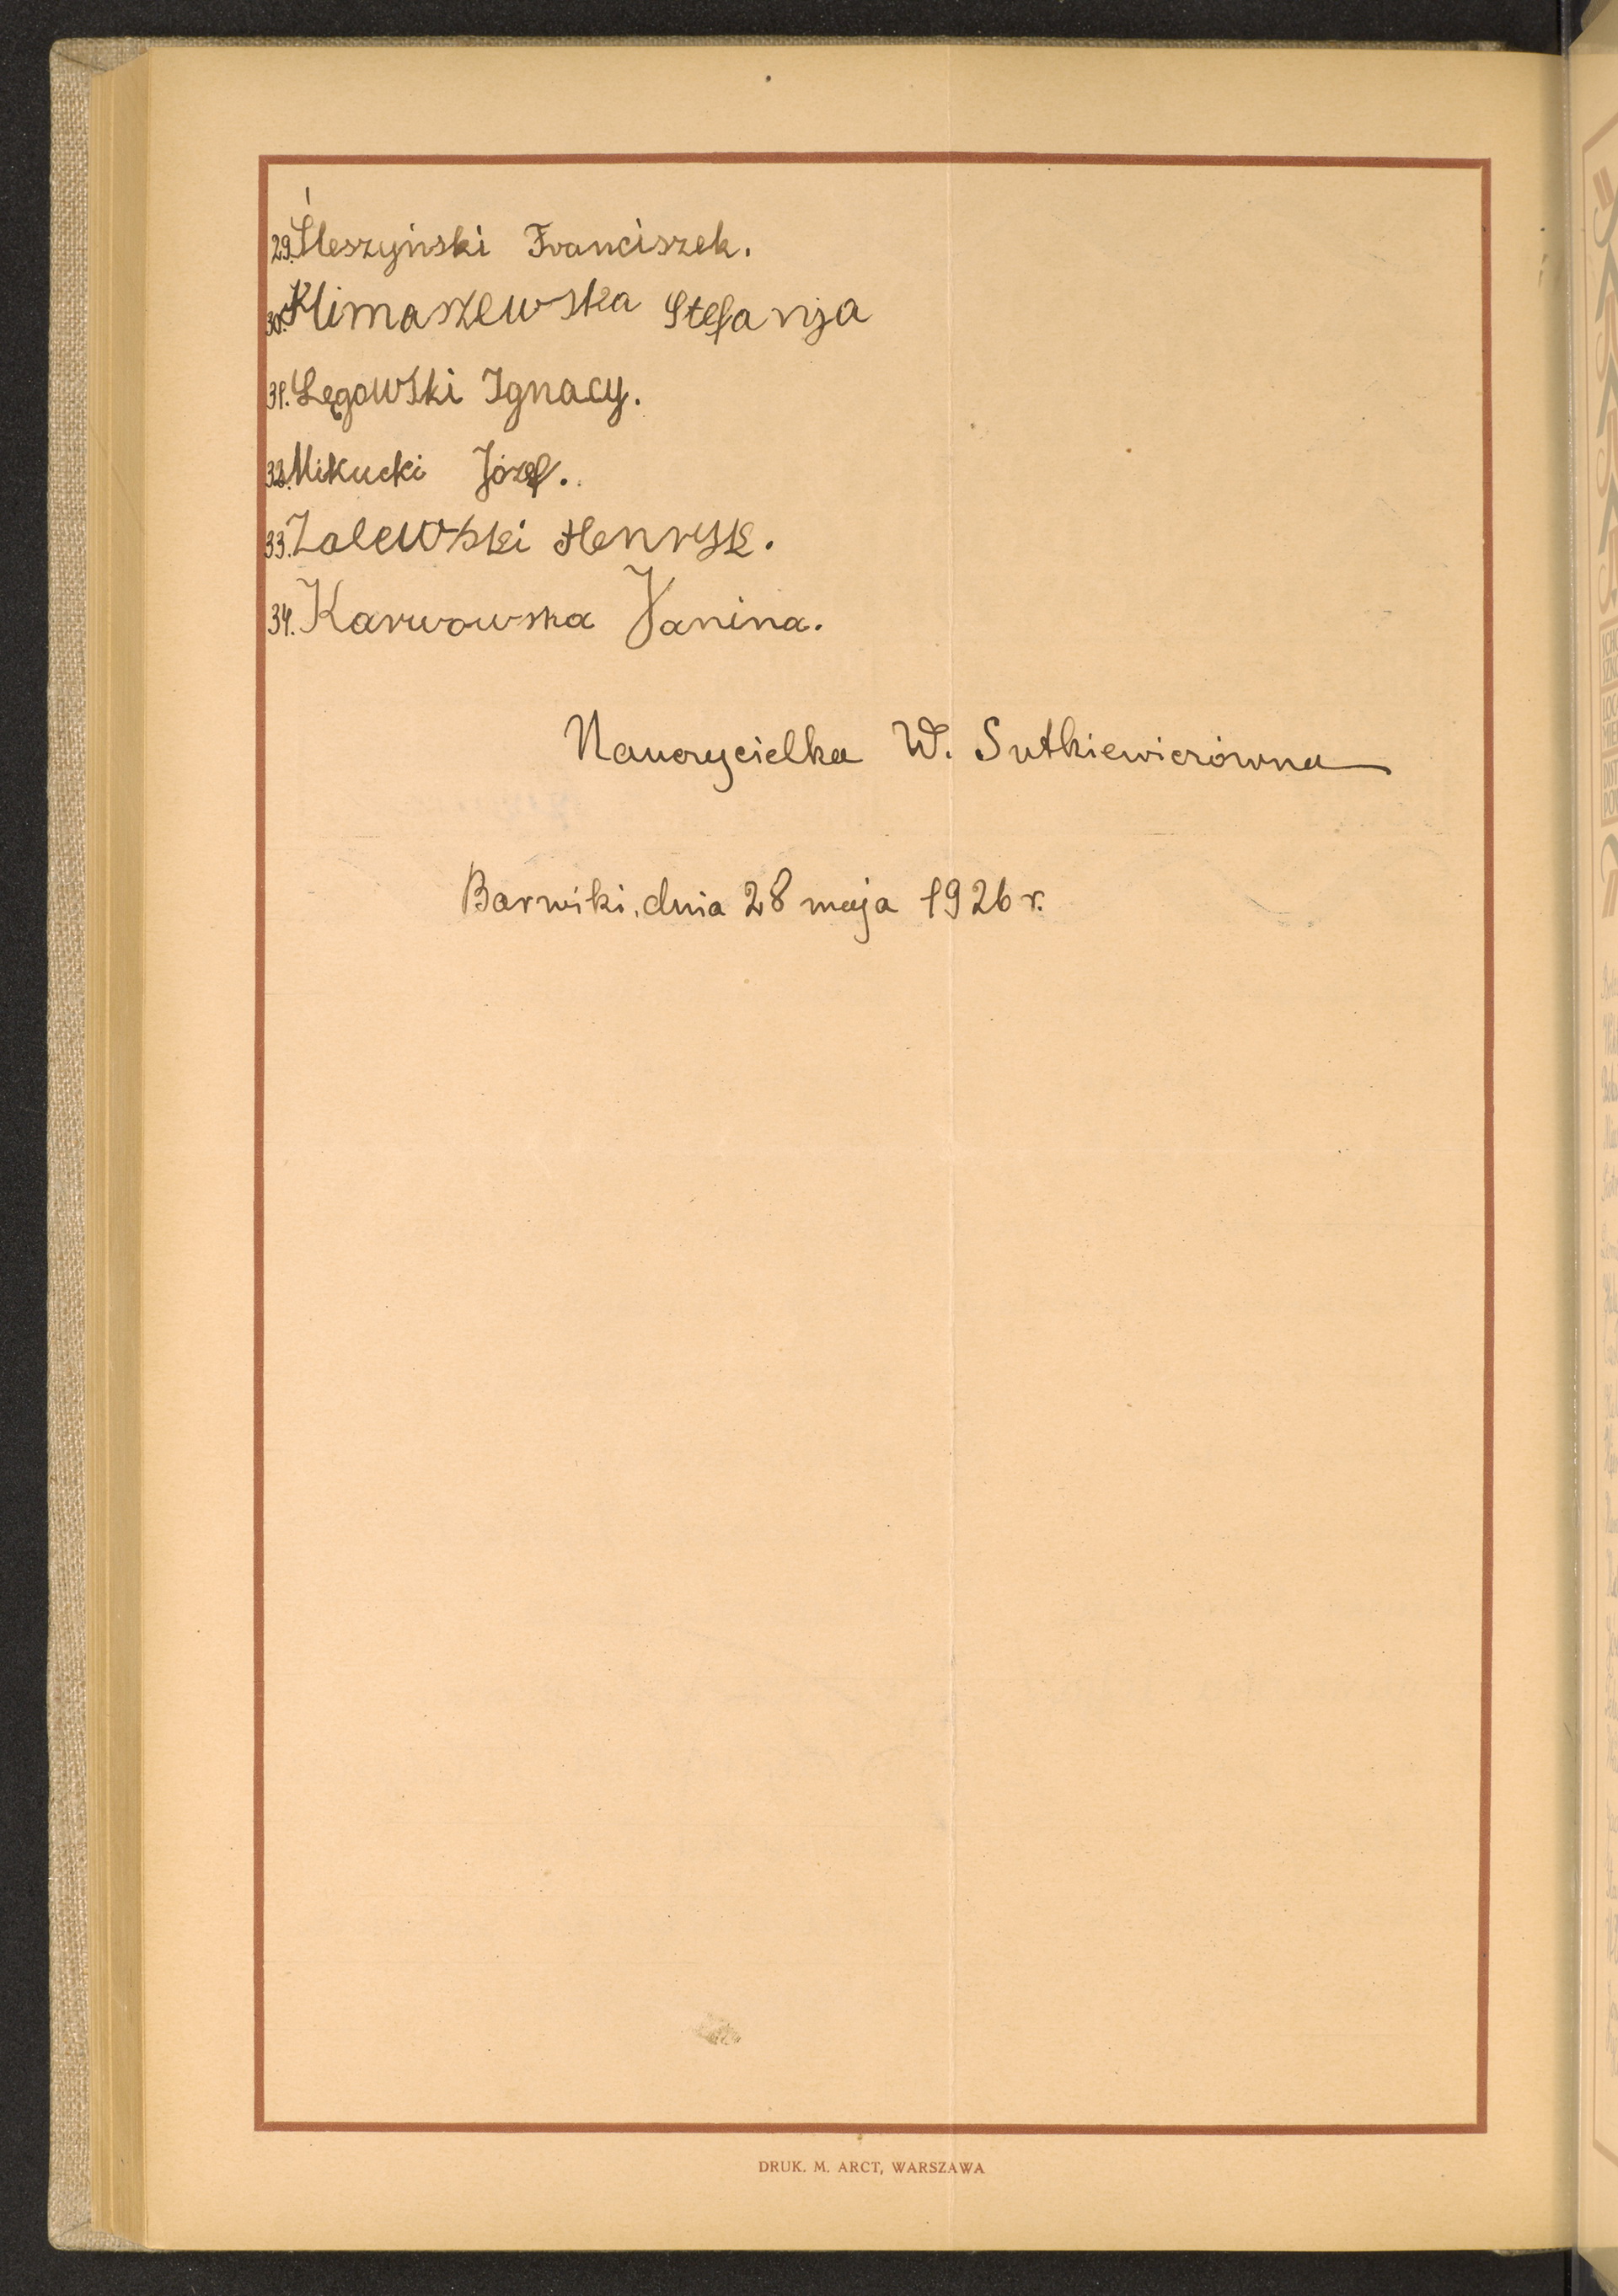 29. Śleszyński Franciszek.
30. Klimaszewska Stefanja
31. Łęgowski Ignacy.
32. Mikucki Józef.
33. Zalewski Henryk.
34. Karwowska Janina.
Nauczycielka W. Sutkiewiczówna
Barwiki, dnia 28 maja 1926 r.
DRUK. M. ARCT, WARSZAWA